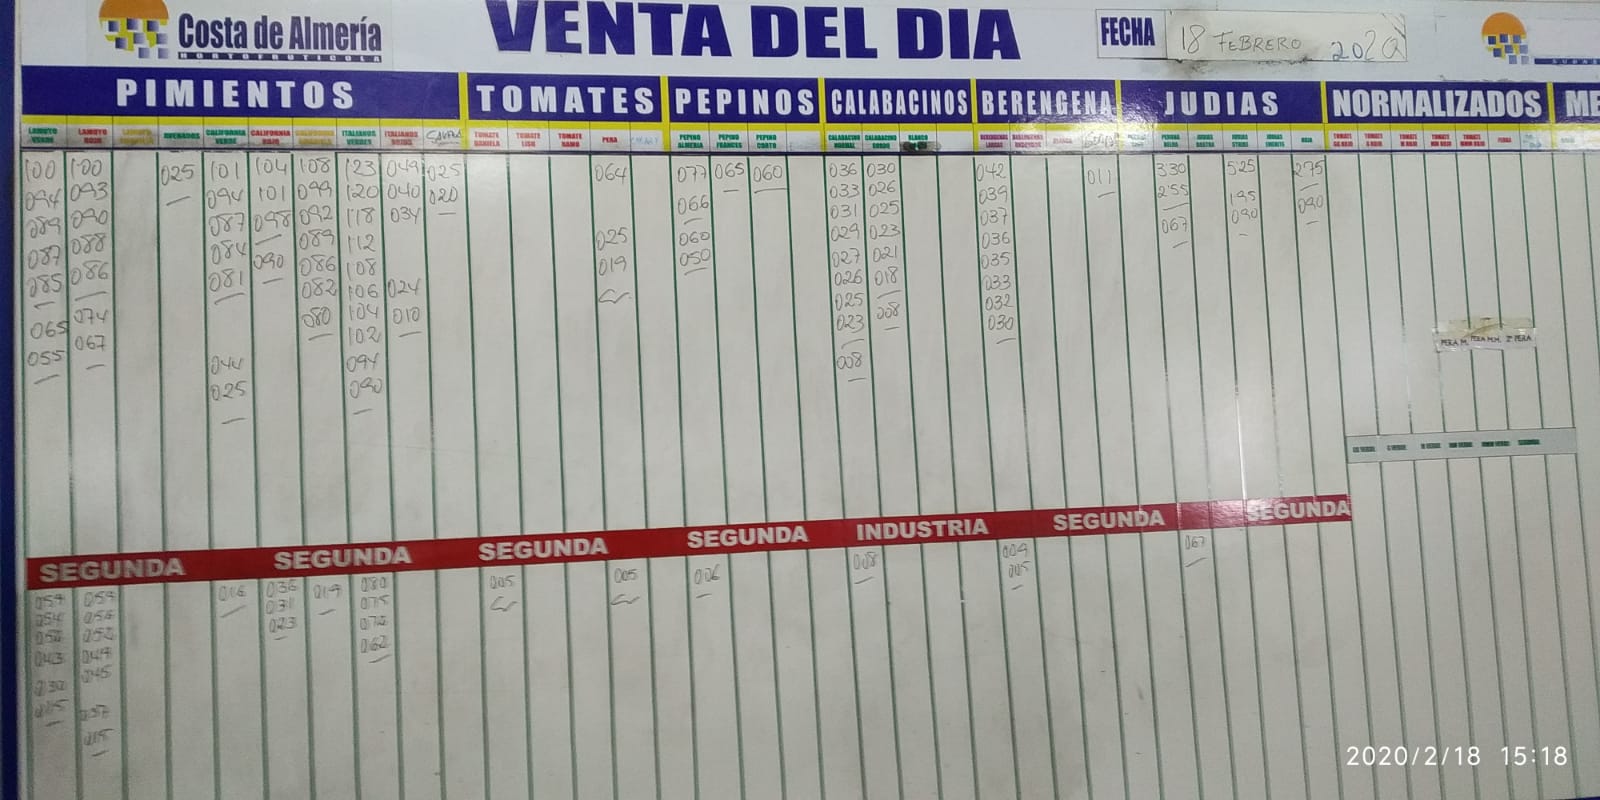 Costa de Almería
HORTOFRUTICOLA
VENTA DEL DIA
FECHA 18 FEBRERO 2020
PIMIENTOS TOMATES PEPINOS CALABACINOS BERENGENA JUDIAS NORMALIZADOS ME
LAMUYO VERDE
LAMUYO ROJO
ASURADOS
CALIFORNIA VERDE
CALIFORNIA ROJO
ITALIANOS VERDES
ITALIANOS ROJOS
TOMATE DANIELA
TOMATE LISO
TOMATE RAMO
PERA
PEPINO ALMERIA
PEPINO FRANCES
PEPINO CORTO
CALABACINO NORMAL
CALABACINO GORDO
BLANCO
100 100 025 101 104 108 123 049 025 064 077 065 060 036 030 042 011 330 525 275
094 093 094 101 099 120 040 020 066 033 026 039 255 195 090
089 090 087 098 092 118 034 025 060 031 025 037 067 090
087 088 084 090 089 112 019 050 029 023 036
085 086 081 086 108 027 021 035
065 074 082 106 024 026 018 033
055 067 080 104 010 025 008 032
102 023 030
044 094 008
025 090
PERA M. PERA M.M. 2ª PERA
SEGUNDA SEGUNDA SEGUNDA SEGUNDA INDUSTRIA SEGUNDA SEGUNDA
059 059 016 036 019 080 005 005 006 008 009 067
054 056 031 075 005
052 052 023 072
043 049 062
030 045
015 037
015
2020/2/18 15:18